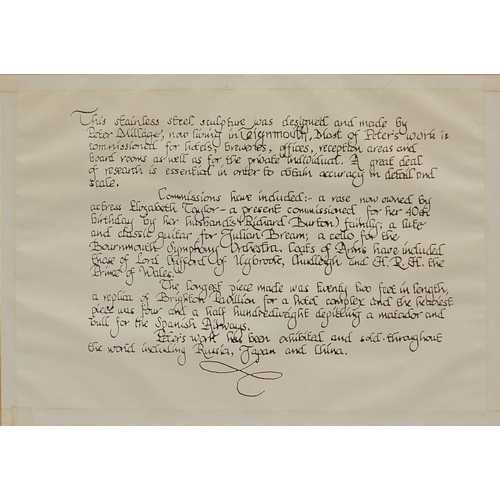 This stainless steel sculpture was designed and made by
Peter Millage, now living in Teignmouth, Most of Peter's work is
commissioned for hotels, breweries, offices, reception areas and
board rooms as well as for the private individual. A great deal
of research is essential in order to obtain accuracy in detail and
scale.
Commissions have included:- a rose now owned by
actress Elizabeth Taylor - a present commissioned for her 40th
birthday by her husband's (Richard Burton) family; a lute
and classic guitar for Julian Bream; a cello for the
Bournmouth Symphony Orchestra. Coats of Arms have included
those of Lord Clifford of Ugbrooke, Chudleigh and H.R.H. the
Prince of Wales.
The longest piece made was twenty two feet in length,
a replica of Brighton Pavillion for a hotel complex and the heaviest
piece was four and a half hundredweight depicting a matador and
bull for the Spanish Airways.
Peter's work has been exhibited and sold throughout
the world including Russia, Japan and China.